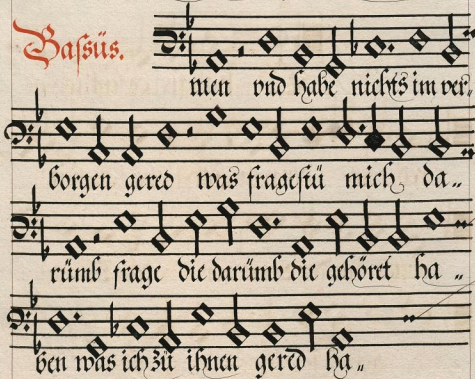 Bassüs.
men vnd habe nichts im ver„
borgen gered was fragestü mich da„
rümb frage die darümb die gehöret ha„
ben was ich zü ihnen gered ha„